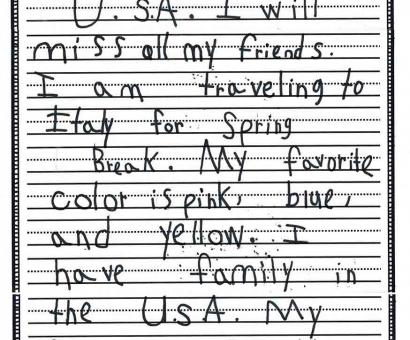 U.S.A. I will
miss all my friends.
I am traveling to
Italy for Spring
Break. My favorite
color is pink, blue,
and yellow. I
have family in
the U.S.A. My